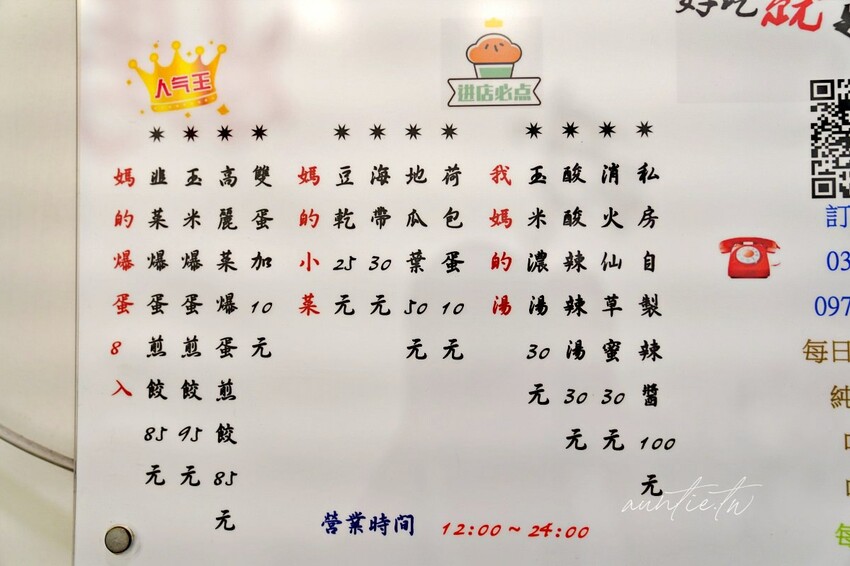 人气王
进店必点
媽的爆蛋8入
韭菜爆蛋煎餃85元
玉米爆蛋煎餃95元
高麗菜爆蛋煎餃85元
雙蛋加10元
媽的小菜
豆乾25元
海帶30元
地瓜葉50元
荷包蛋10元
我媽的湯
玉米濃湯30元
酸酸辣辣湯30元
消火仙草蜜30元
私房自製辣醬100元
營業時間 12:00~24:00
訂
03
097
每日
純
auntie.tw